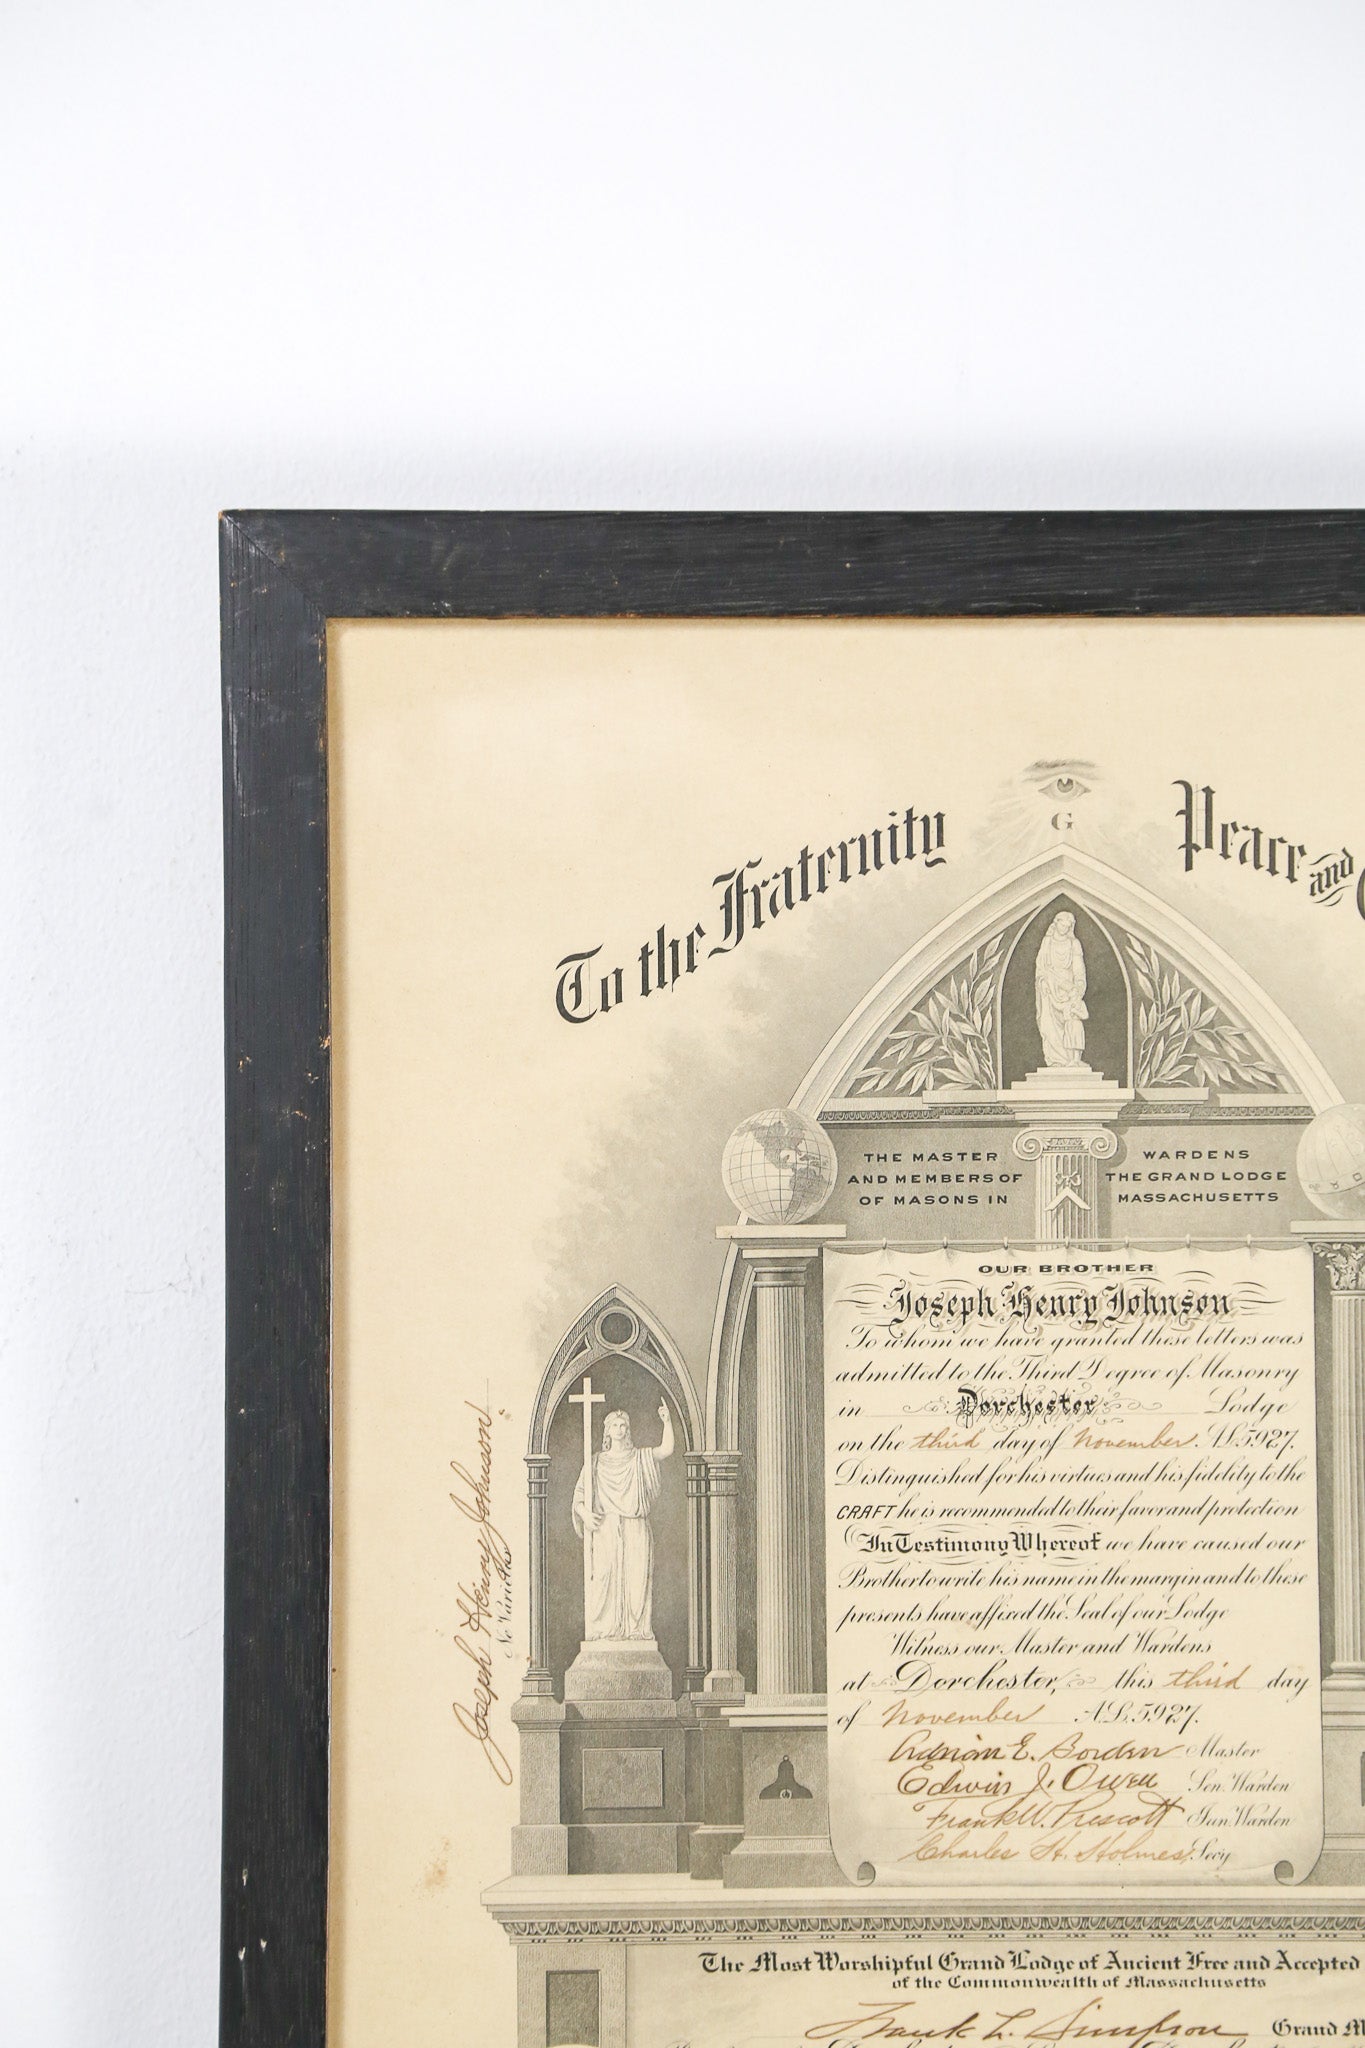 To the Fraternity Peace and
G
THE MASTER WARDENS
AND MEMBERS OF THE GRAND LODGE
OF MASONS IN MASSACHUSETTS
OUR BROTHER
Joseph Henry Johnson
To whom we have granted these letters was
admitted to the Third Degree of Masonry
in Dorchester Lodge
on the third day of November A.L. 5927.
Distinguished for his virtues and his fidelity to the
CRAFT he is recommended to their favor and protection
In Testimony Whereof we have caused our
Brother to write his name in the margin and to these
presents have affixed the Seal of our Lodge
Witness our Master and Wardens
at Dorchester, this third day
of November A.L. 5927.
Adrian E. Borden Master
Edwin J. Owen Sen. Warden
Frank W. Prescott Jun. Warden
Charles H. Holmes Secy
Joseph Henry Johnson
Ne Varietur
The Most Worshipful Grand Lodge of Ancient Free and Accepted
of the Commonwealth of Massachusetts
Frank L. Simpson Grand M